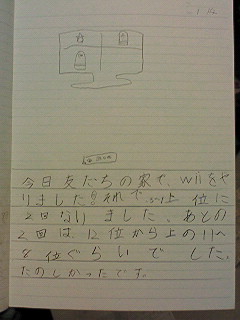 今日友だちの家で、wiiをや
りました。それで、1位に
2回なりました。あとの
2回は、12位から上の11へ
8位ぐらいでした。
たのしかったです。